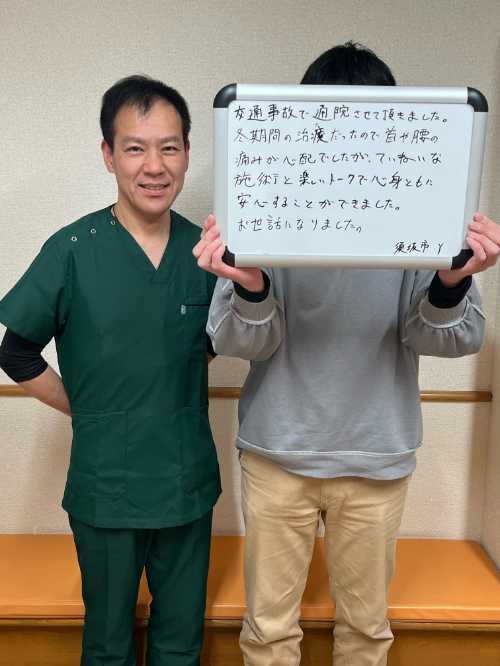 交通事故で通院させて頂きました。
冬期間の治療だったので首や腰の
痛みが心配でしたが、ていねいな
施術と楽しいトークで心身ともに
安心することができました。
お世話になりました。
須坂市 Y